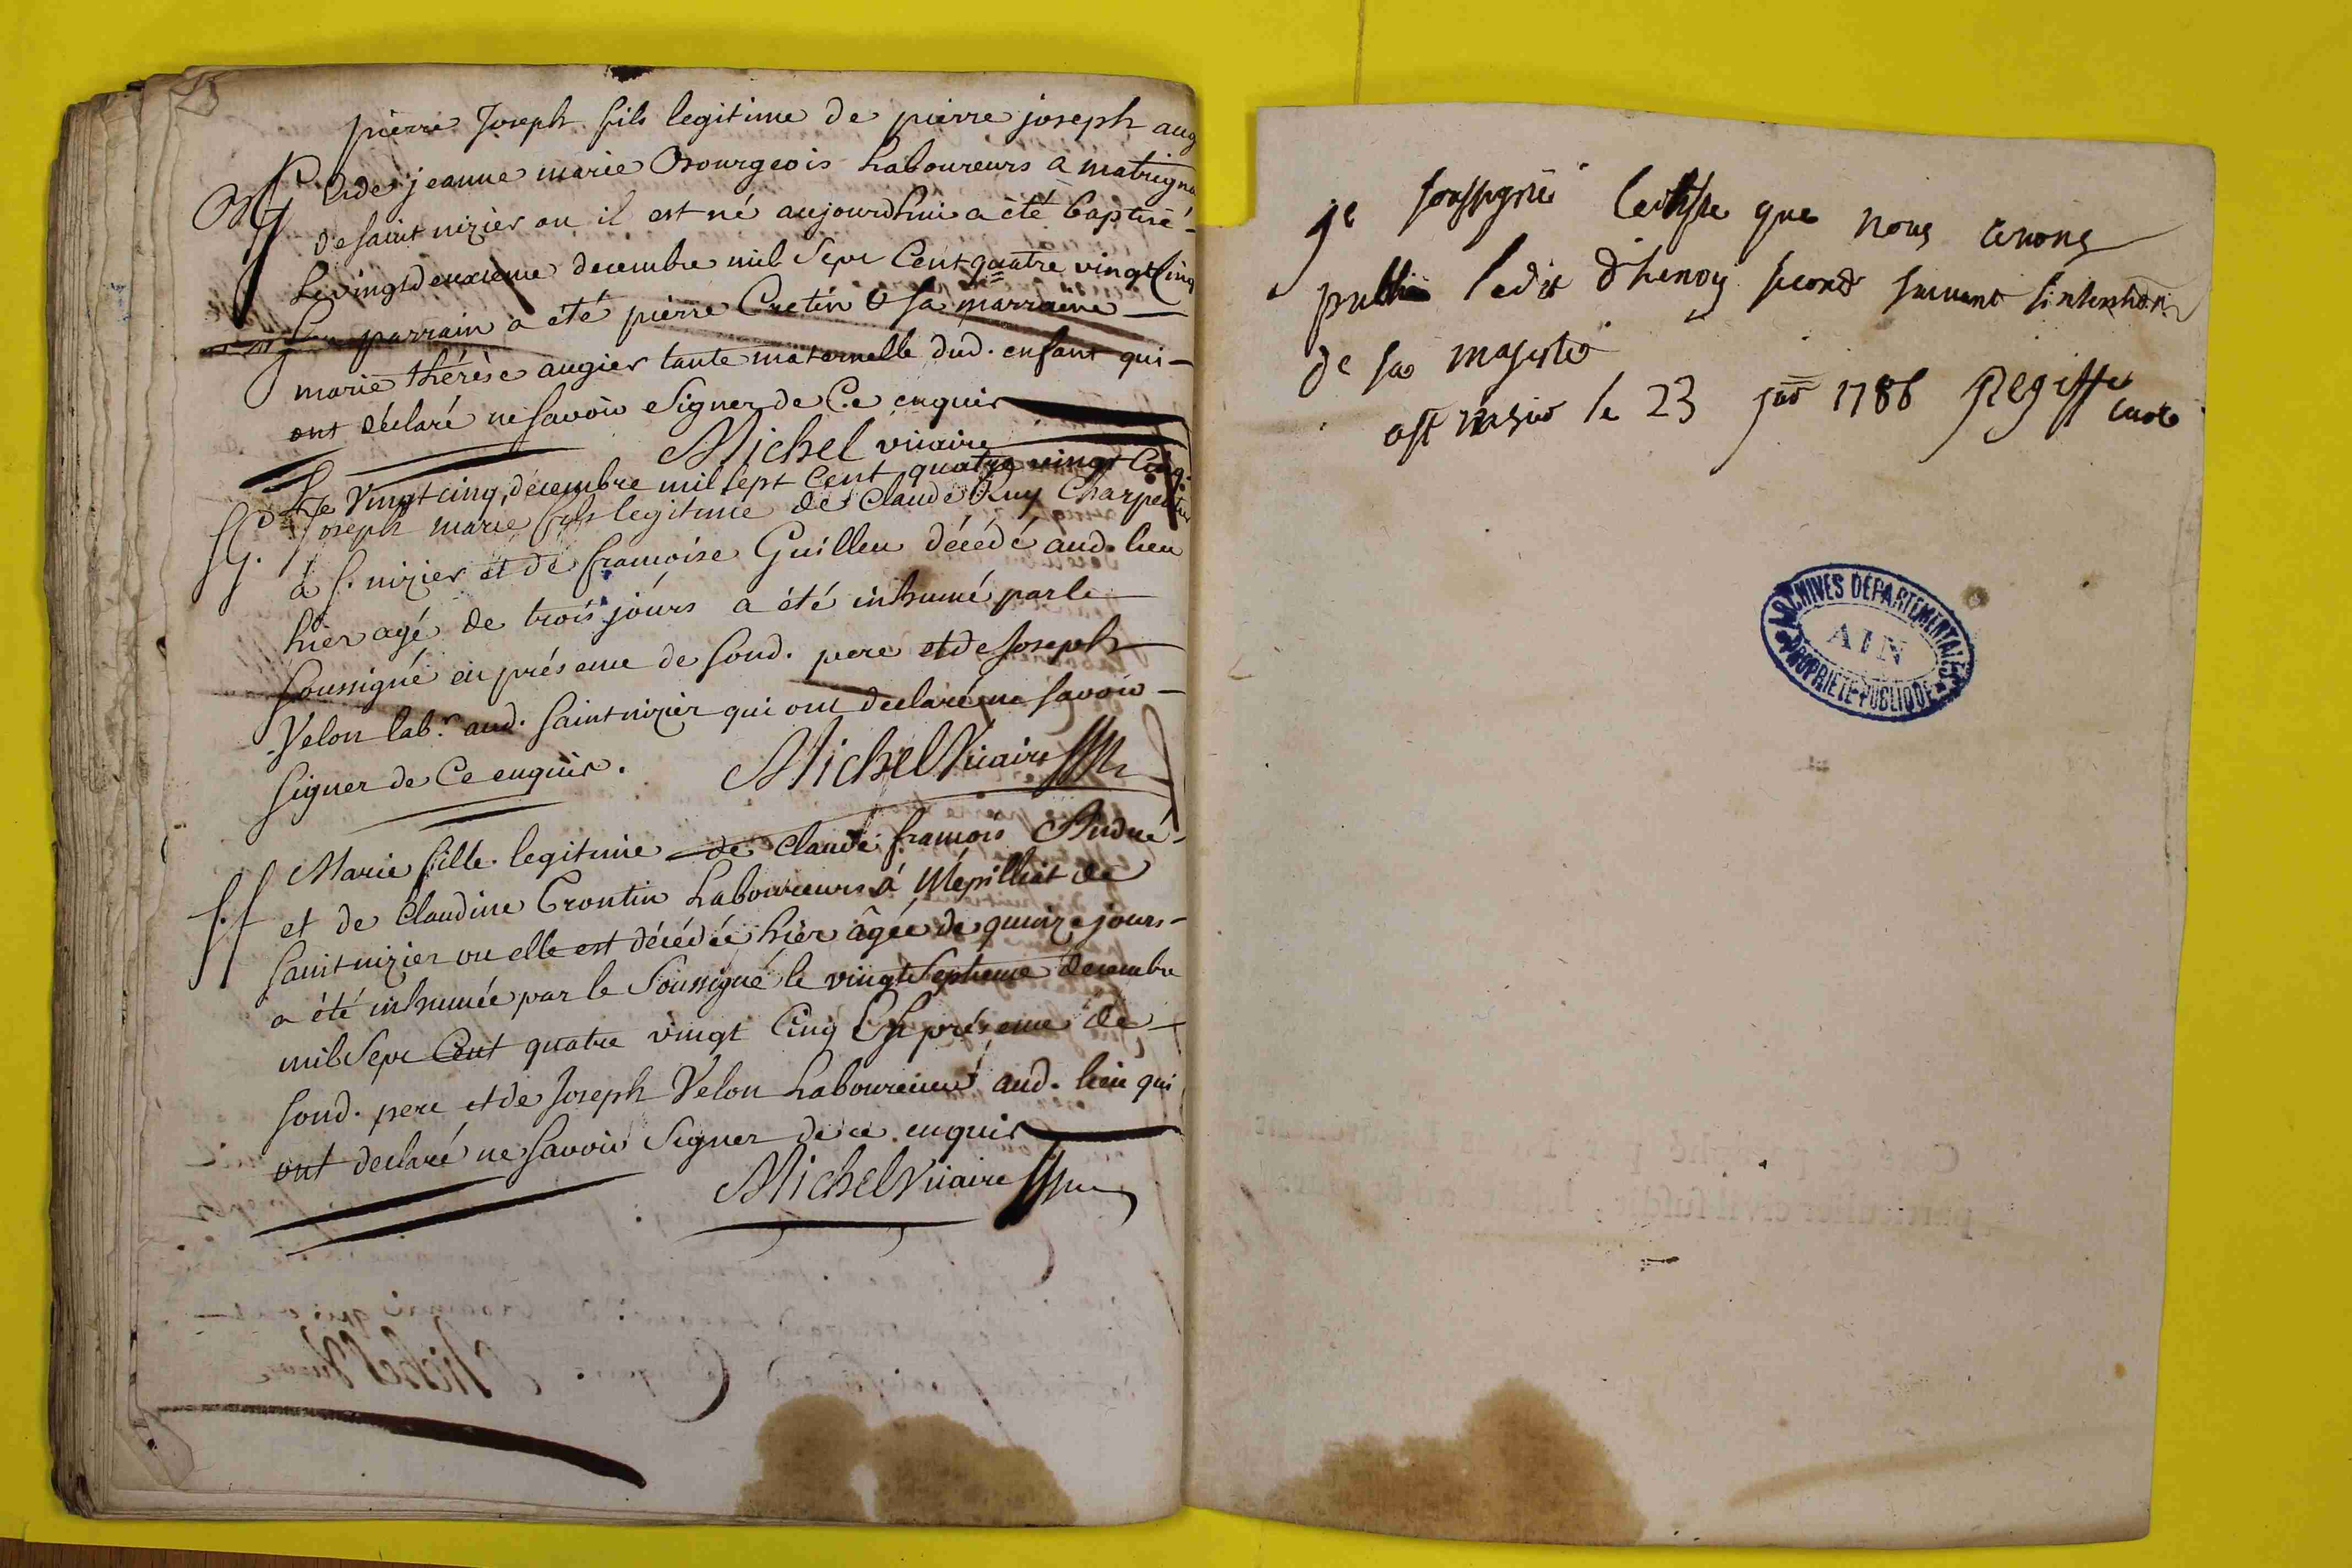 pierre Joseph fils legitime de pierre joseph aug
Bg. & de jeanne marie Bourgeois Laboureurs a matrigna
de saint nizier ou il est né aujourdhui a été baptisé
Le vingtdeuxieme decembre mil Sept Cent quatre vingt Cinq
Son parrain a été pierre Cretin & sa marraine
marie thérèse augier tante maternelle dud. enfant qui
ont déclaré ne savoir signer de Ce enquis
Michel vicaire
Le Vingt cinq decembre mil sept Cent quatre vingt Cinq
SG. Joseph marie fils legitime de Claude Charpentier
à s. nizier et de francoise Guillen décédé aud. lieu
hier agé de trois jours a été inhumé par le
Soussigné en présence de sond. pere et de Joseph
Velon lab.r aud. saint nizier qui ont declaré ne savoir
signer de Ce enquis.
Michel Vicaire
Marie fille legitime de Claude francois
S.f et de Claudine Crontin Laboureurs à Mépilliat de
saint nizier ou elle est décédée hier âgée de quinze jours
a été inhumée par le Soussigné le vingt Septieme decembre
mil Sept Cent quatre vingt Cinq En présence de
sond. pere et de Joseph Velon Laboureurs aud. lieu qui
ont declaré ne savoir signer de ce enquis
Michel Vicaire
je soussigné Certifie que nous avons
publié ledit d'henry second suivant lintention
de sa majesté
a st nisier le 23 1786 curé
ARCHIVES DÉPARTEMENTALES
AIN
PROPRIÉTÉ PUBLIQUE